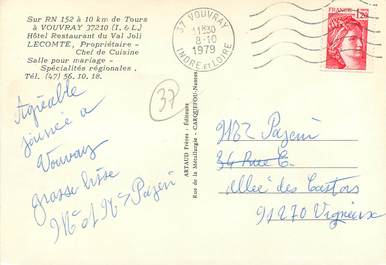 Sur RN 152 à 10 km de Tours
à VOUVRAY 37210 (I. & L.)
Hôtel Restaurant du Val Joli
LECOMTE, Propriétaire -
Chef de Cuisine
Salle pour mariage -
Spécialités régionales .
Tél. (47) 56. 10. 18.
37 VOUVRAY
11H30
8-10
1979
INDRE et LOIRE
1,20
37
Agréable
journée à
Vouvray
grosse bise
ARTAUD Frères - Éditeurs
Rue de la Métallurgie - CARQUEFOU-Nantes
allée des Castors
91270 Vigneux